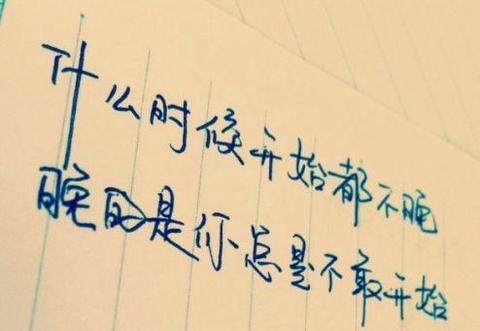 什么时候开始都不晚
晚的是你总是不敢开始